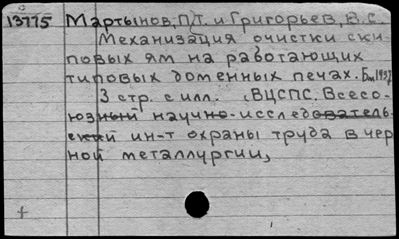 13775 Мартынов, П.Т. и Григорьев, В.С.
Механизация очистки ски-
повых ям на работающих
типовых доменных печах. Бм, 1957
3 стр. с илл. (ВЦСПС. Всесо-
юзный научно-исследователь-
ский ин-т охраны труда в чер
ной металлургии,